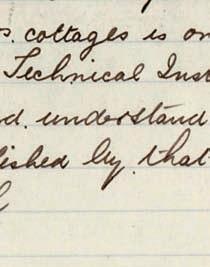 cottages is on
Technical Inst
d. understand
ished by that